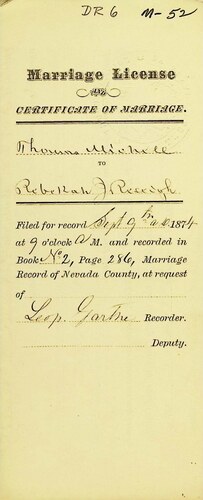 DR 6 M-52
Marriage License
AND
CERTIFICATE OF MARRIAGE.
Thomas Michell
TO
Rebekah J
Filed for record Sept 9th A.D. 1874
at 9 o'clock A M. and recorded in
Book No 2, Page 286, Marriage
Record of Nevada County, at request
of
Leop. Recorder.
Deputy.